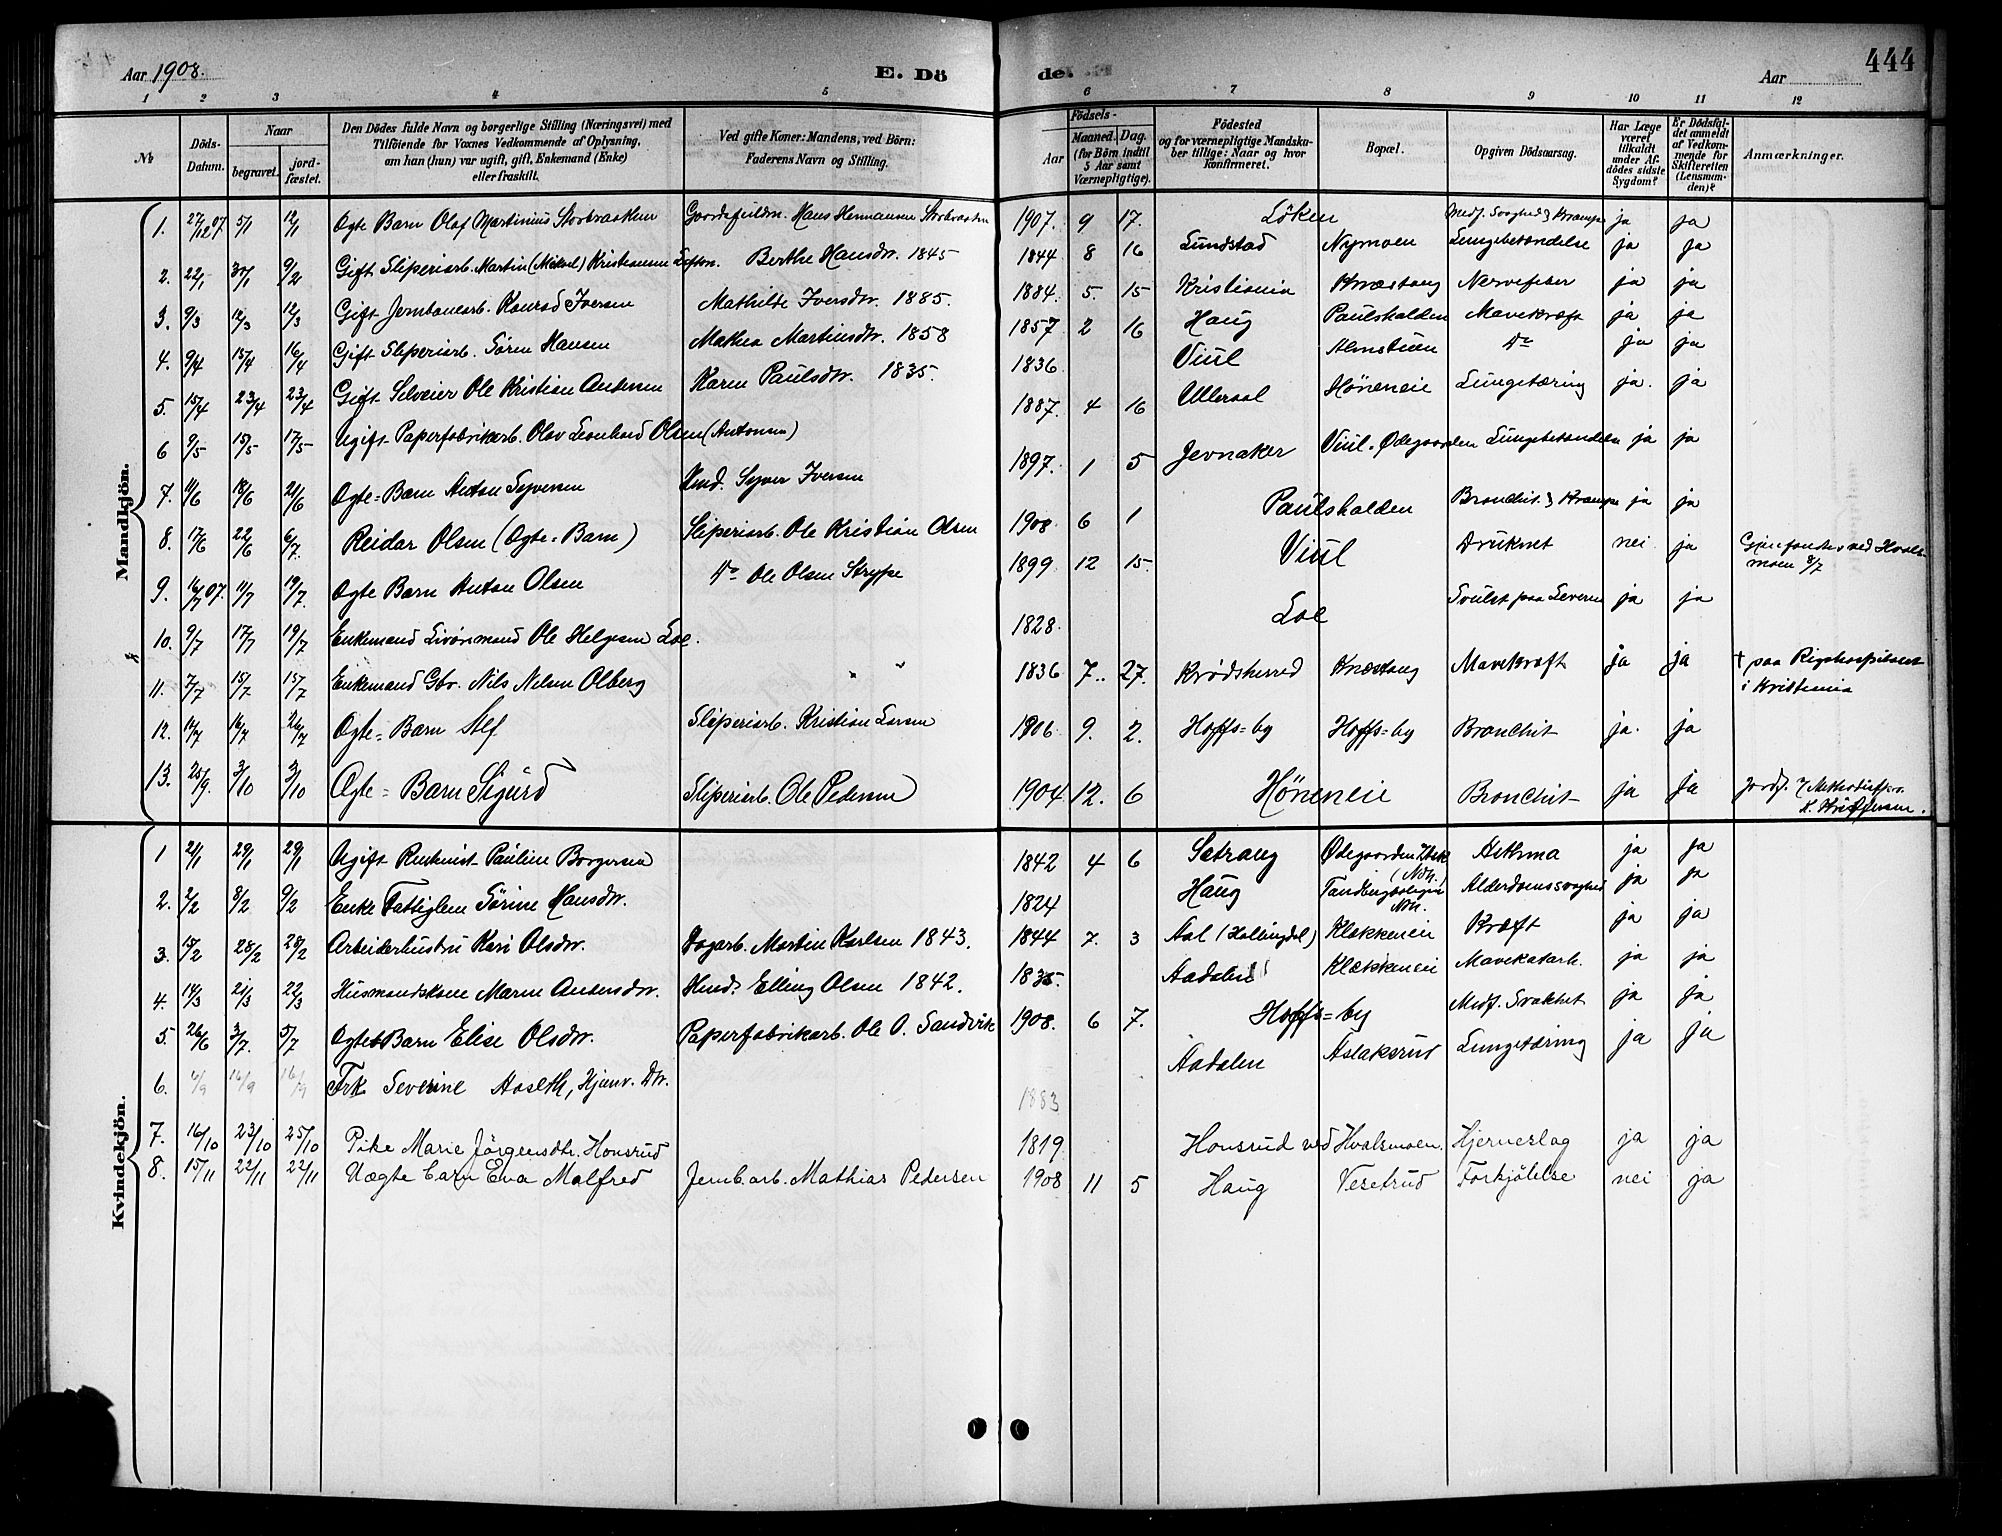 Aar 1908.
E. Dö
de.
Aar
444
1 2 3 4 5 6 7 8 9 10 11 12
№
Döds-Datum.
Naar
begravet.
jord-fæstet.
Den Dödes fulde Navn og borgerlige Stilling (Næringsvei) med
Tilföiende for Voxnes Vedkommende af Oplysning,
om han (hun) var ugift, gift, Enkemand (Enke)
eller fraskilt.
Ved gifte Koner: Mandens, ved Börn:
Faderens Navn og Stilling.
Födsels-
Aar
Maaned. Dag.
(for Börn indtil
5 Aar samt
Værnepligtige).
Födested
og for værnepligtige Mandska-
ber tillige: Naar og hvor
konfirmeret.
Bopæl.
Opgiven Dödsaarsag.
Har Læge
været
tilkaldt
under Af-
dödes sidste
Sygdom?
Er Dödsfal-
det anmeldt
af Vedkom-
mende for
Skifteretten
(Lensman-
den)?
Anmærkninger.
Mandkjön.
1. 27/12 07 5/1 12/1 Ægte Barn Olaf Martinius Storbraaten Gaardsfuldm. Hans Hermansen Storbraaten 1907. 9 17. Löken Medf. Svaghed & Krampe ja ja
2. 22/1 30/1 9/2 Gift Sliperiarb. Martin (Mikael) Kristiansen Loften. Berthe Hansdtr. 1845 1844 8 16 Lundstad Nymoen Lungebetændelse ja ja
3. 9/3 12/3 12/3 Gift Jernbanearb. Konrad Iversen Mathilde Iversdtr. 1885. 1884. 5. 15 Kristiania Knæstang Nervefeber ja ja
4. 9/4 15/4 16/4 Gift Sliperiarb. Søren Hansen Mathea Martinsdtr. 1858 1857. 2 16 Haug Paulshalden Mavekræft ja ja
5. 15/4 23/4 23/4 Gift Selveier Ole Kristian Andersen Karen Paulsdtr. 1835. 1836. Viul Almstiuen Do ja ja
6 9/5 15/5 17/5 Ugift Papirfabrikarb. Olav Leonhard Olsen (Antonsen) 1887. 4 16 Ulleraal Höneneie Lungetæring ja. ja
7. 11/6 18/6 21/6 Ægte=Barn Anton Syversen Hmd. Syver Iversen 1897. 1 5 Jevnaker Viul-Ødegaarden Lungebetændelse ja ja
8. 17/6 22/6 6/7. Reidar Olsen (Ægte=Barn) Sliperiarb. Ole Kristian Olsen 1908. 6 1 Paulshalden Bronchit. & Krampe ja ja
9. 16/7 07. 11/7 19/7. Ægte Barn Anton Olsen Do Ole Olsen Strype 1899. 12 15. Viul Druknet nei ja Gjenfanden ved Hvals-
moen 8/7
10. 9/7 17/7 19/7 Enkemand Livörnmand Ole Helgesen Loe. 1828. Loe Svulst paa Leveren ja ja
11. 7/7 15/7 15/7 Enkemand Gbr. Nils Nilsen Olberg " 1836 7.. 27. Krødsherred Knæstang Mavekræft ja ja † paa Rigshospitalet
i Kristiania
12. 14/7 16/7 26/7 Ægte=Barn Alf Sliperiarb. Kristian Larsen 1906. 9. 2. Hoffs=by Hoffs=by Bronchit ja. ja
13. 25/9. 3/10 3/10 Ægte=Barn Sigurd Sliperiarb. Ole Pedersen 1904 12. 6 Höneneie Bronchit ja ja
Kvindekjön.
1 21/1 29/1 29/1 Ugift Pauline Borgersen 1842 4 6 Sætrang Ødegaarden Astma ja ja
2. 2/2 8/2 9/2 Enke Fattiglem Sörine Hansdtr. 1824 Haug Alderdomssvaghed ja ja
3. 18/2 28/2 28/2 Arbeiderhustru Kari Olsdtr. Dagarb. Martin Karlsen 1843. 1844 7. 3 Aal (Hallingdal) Klækkeneie Kræft ja ja
4. 14/3 21/3 22/3 Husmandskone Maren Andersdtr. Hmd. Elling Olsen 1842. 1835. Aadalen Klækkeneie Mavekatarh. ja ja
5. 26/6 3/7. 5/7 Ægte Barn Elise Olsdtr. Papirfabrikarb. Ole O. Sandvik 1908. 6 7. Hoffs=by Medf. Svakhet ja ja
6. 6/9 16/9 16/9 Frk Severine Aaseth, Hjemv. Dtr. 1883 Aadalen Aslaksrud Lungetæring ja ja
7. 16/10 23/10 25/10 Pike Marie Jörgensdtr. Honsrud 1819 Honsrud ved Hvalsmoen. Hjerneslag ja ja
8. 15/11 22/11 22/11 Uægte barn Eva Malfred Jernb.arb. Mathias Pedersen 1908 11 5 Haug Vesetrud Forkjölelse nei ja